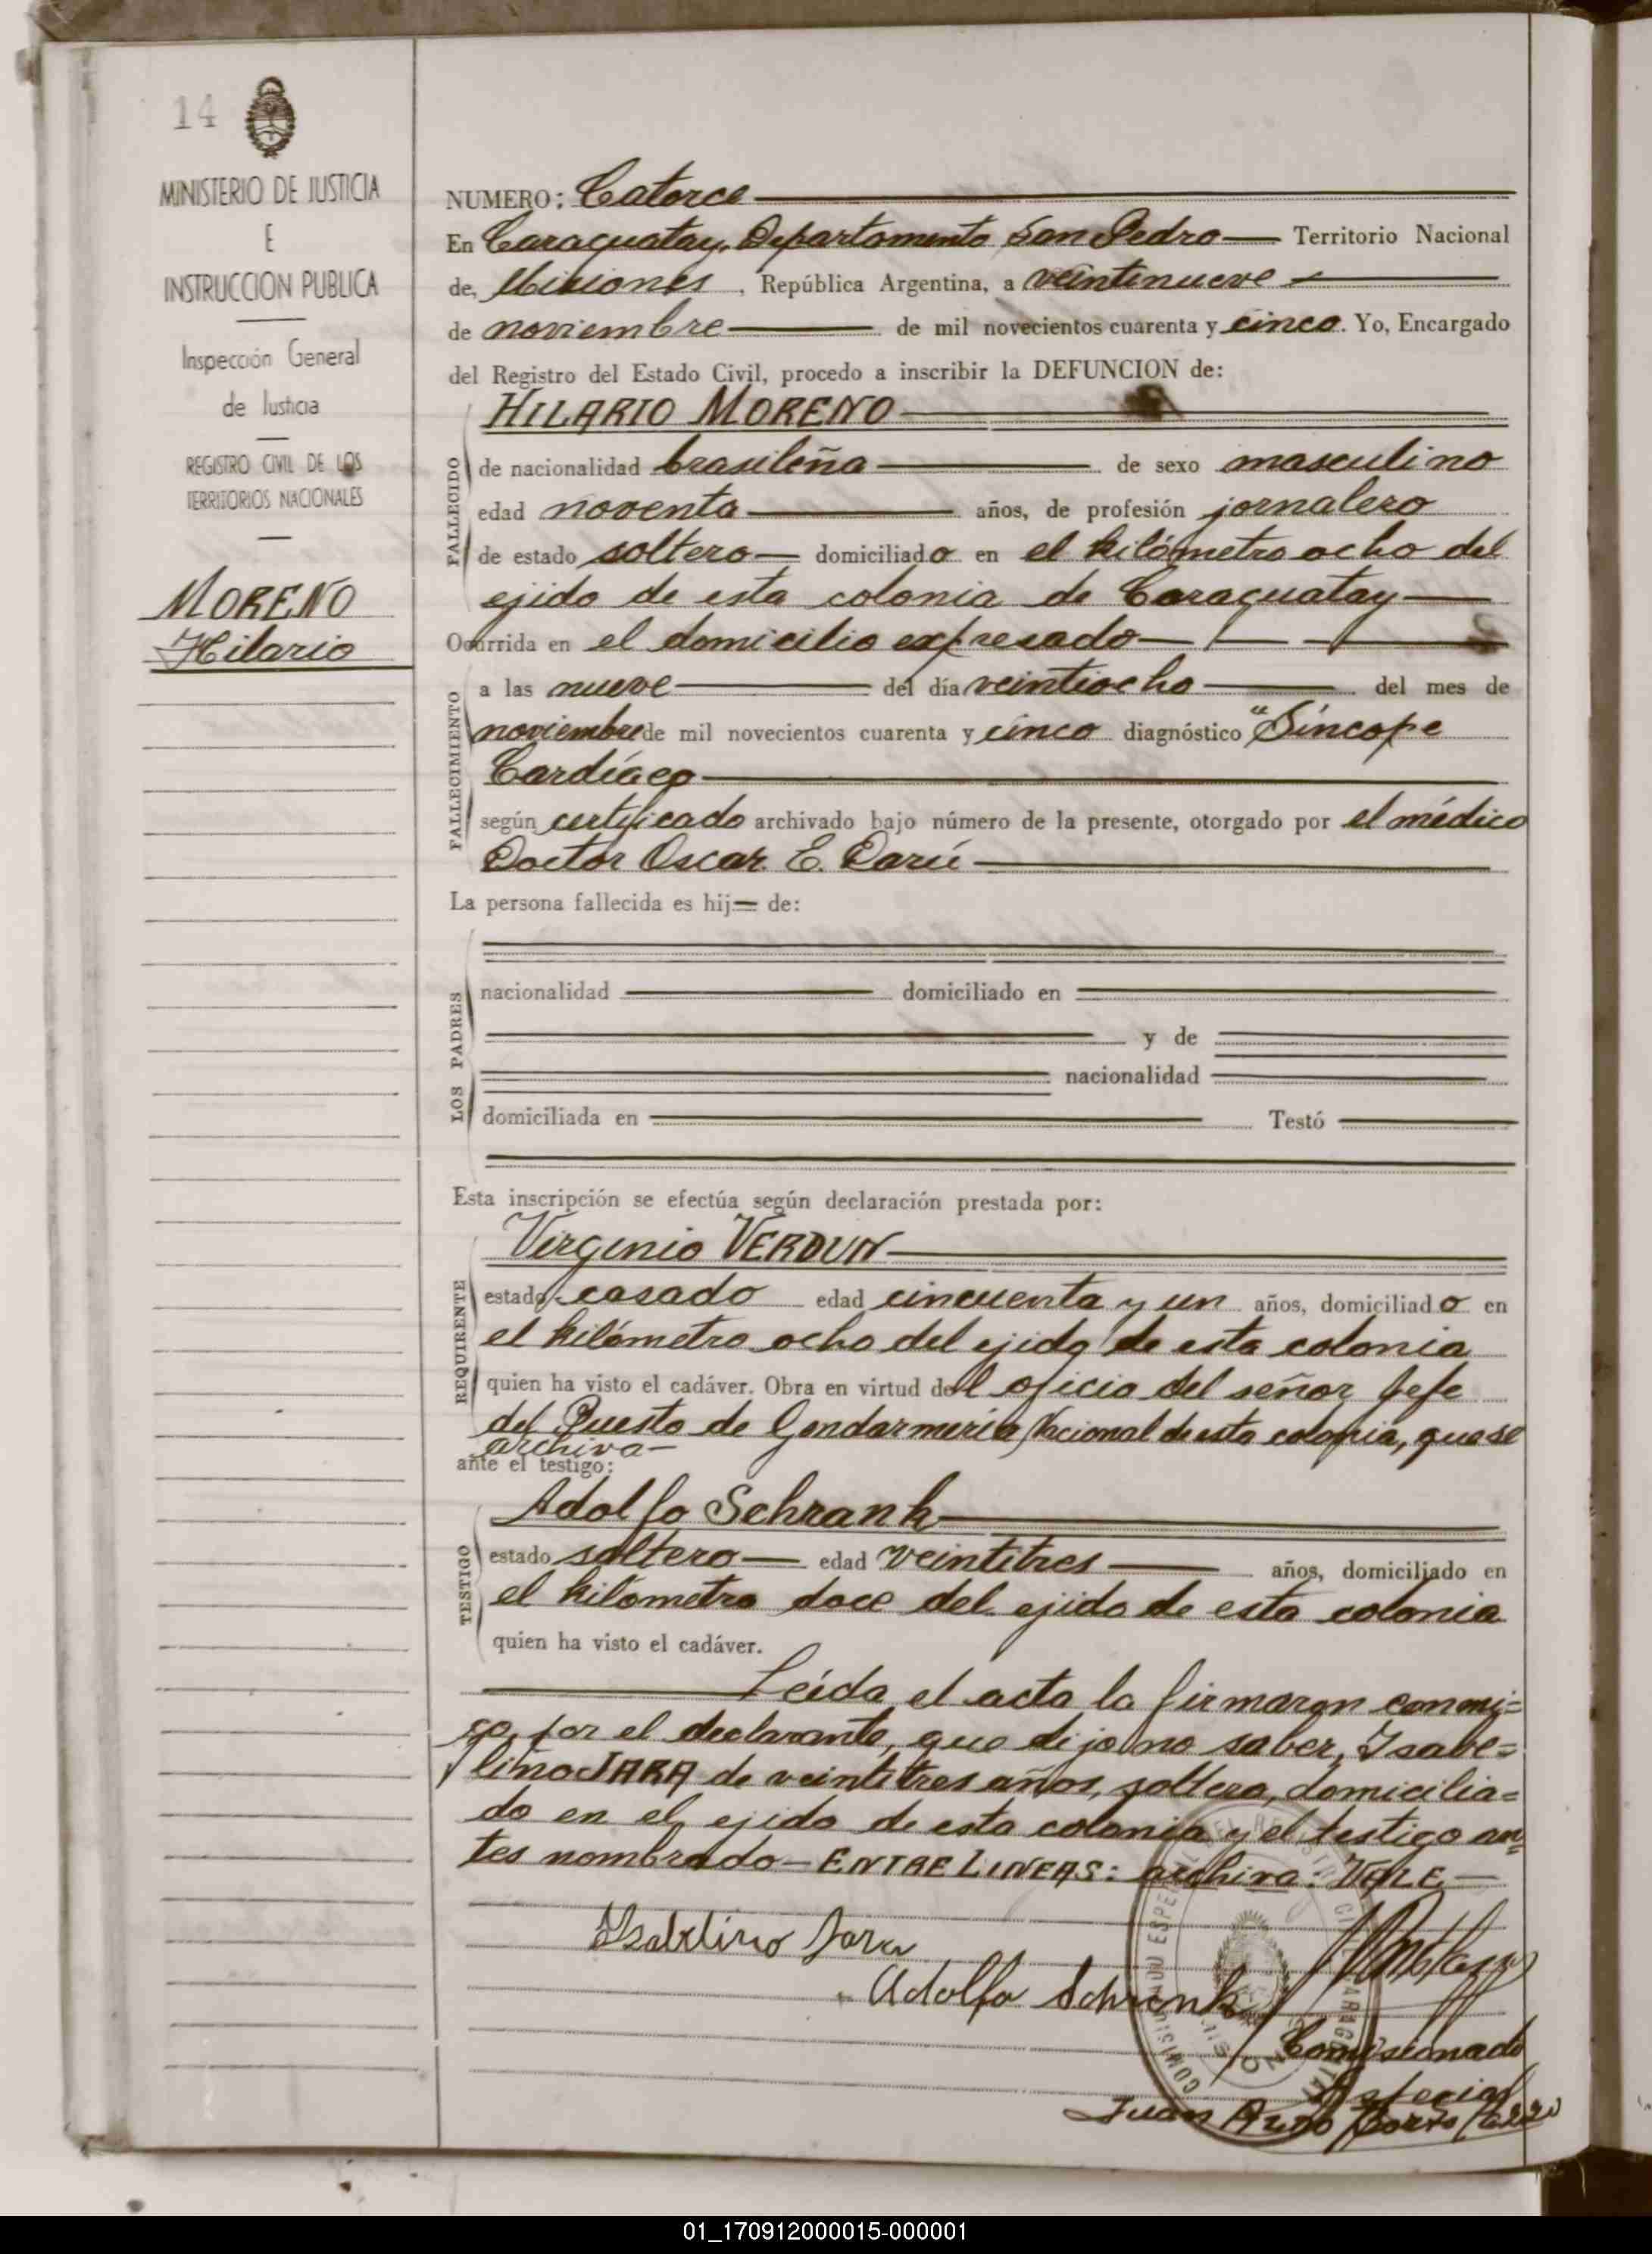 14
MINISTERIO DE JUSTICIA
E
INSTRUCCION PUBLICA
Inspección General
de Justicia
REGISTRO CIVIL DE LOS
TERRITORIOS NACIONALES
MORENO
Hilario
NUMERO: Catorce
En Caraguatay, Departamento San Pedro Territorio Nacional
de, Misiones, República Argentina, a veintinueve
de noviembre de mil novecientos cuarenta y cinco. Yo, Encargado
del Registro del Estado Civil, procedo a inscribir la DEFUNCION de:
HILARIO MORENO
FALLECIDO
de nacionalidad brasileña de sexo masculino
edad noventa años, de profesión jornalero
de estado soltero domiciliado en el kilómetro ocho del
ejido de esta colonia de Caraguatay
Ocurrida en el domicilio expresado
FALLECIMIENTO
a las nueve del día veintiocho del mes de
noviembre de mil novecientos cuarenta y cinco diagnóstico "Síncope
Cardíaco
según certificado archivado bajo número de la presente, otorgado por el médico
Doctor Oscar E. Darú
La persona fallecida es hij de:
LOS PADRES
nacionalidad domiciliado en
y de
nacionalidad
domiciliada en Testó
Esta inscripción se efectúa según declaración prestada por:
Virginio VERDUN
REQUIRENTE
estado casado edad cincuenta y un años, domiciliado en
el kilómetro ocho del ejido de esta colonia
quien ha visto el cadáver. Obra en virtud del oficio del señor Jefe
del Puesto de Gendarmería Nacional de esta colonia, que se
archiva-
ante el testigo:
Adolfo Schrank
TESTIGO
estado soltero edad veintitres años, domiciliado en
el kilometro doce del ejido de esta colonia
quien ha visto el cadáver.
Leída el acta la firmaron conmi=
go, por el declarante, que dijo no saber, Isabe=
lino JARA de veintitres años, soltero, domicilia=
do en el ejido de esta colonia y el testigo an=
tes nombrado - ENTRE LINEAS: archiva: VALE -
Isabelino Jara
Adolfo Schrank
Comisionado
Especial
Juan
01_170912000015-000001